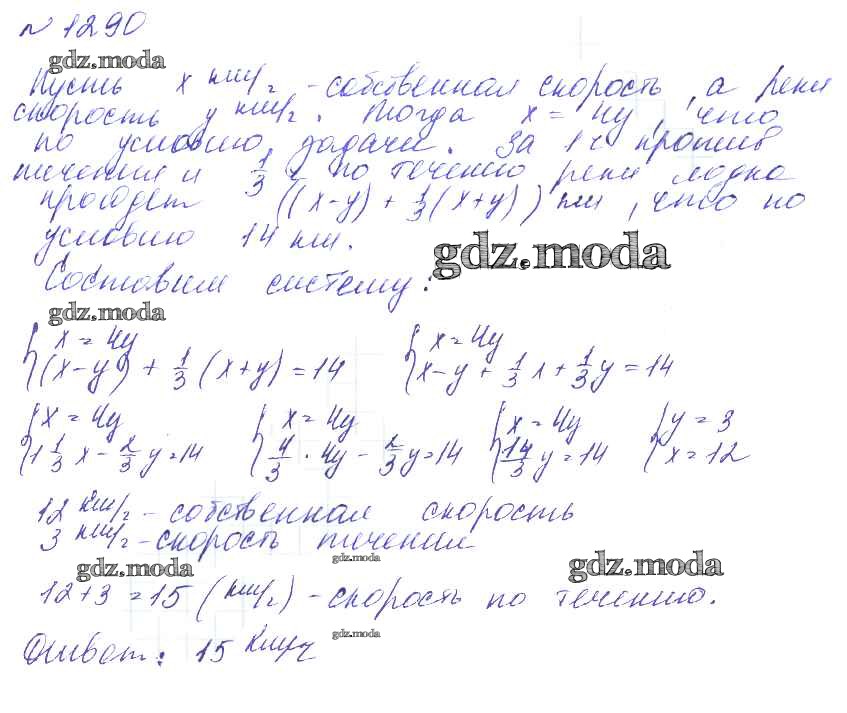 № 1290
gdz.moda
Пусть x км/ч - собственная скорость, а реки
скорость y км/ч. Тогда x = 4y, что
по условию задачи. За 1 ч против
течения и 1/3 ч по течению реки лодка
пройдет ((x-y) + 1/3(x+y)) км, что по
условию 14 км.
gdz.moda
Составим систему:
gdz.moda
{x = 4y {x = 4y
{(x-y) + 1/3 (x+y) = 14 {x-y + 1/3 x + 1/3 y = 14
{x = 4y {x = 4y {x = 4y {y = 3
{1 1/3 x - 2/3 y = 14 {4/3 · 4y - 2/3 y = 14 {14/3 y = 14 {x = 12
12 км/ч - собственная скорость
3 км/ч - скорость течения
gdz.moda gdz.moda gdz.moda
12+3 = 15 (км/ч) - скорость по течению.
gdz.moda
Ответ: 15 км/ч